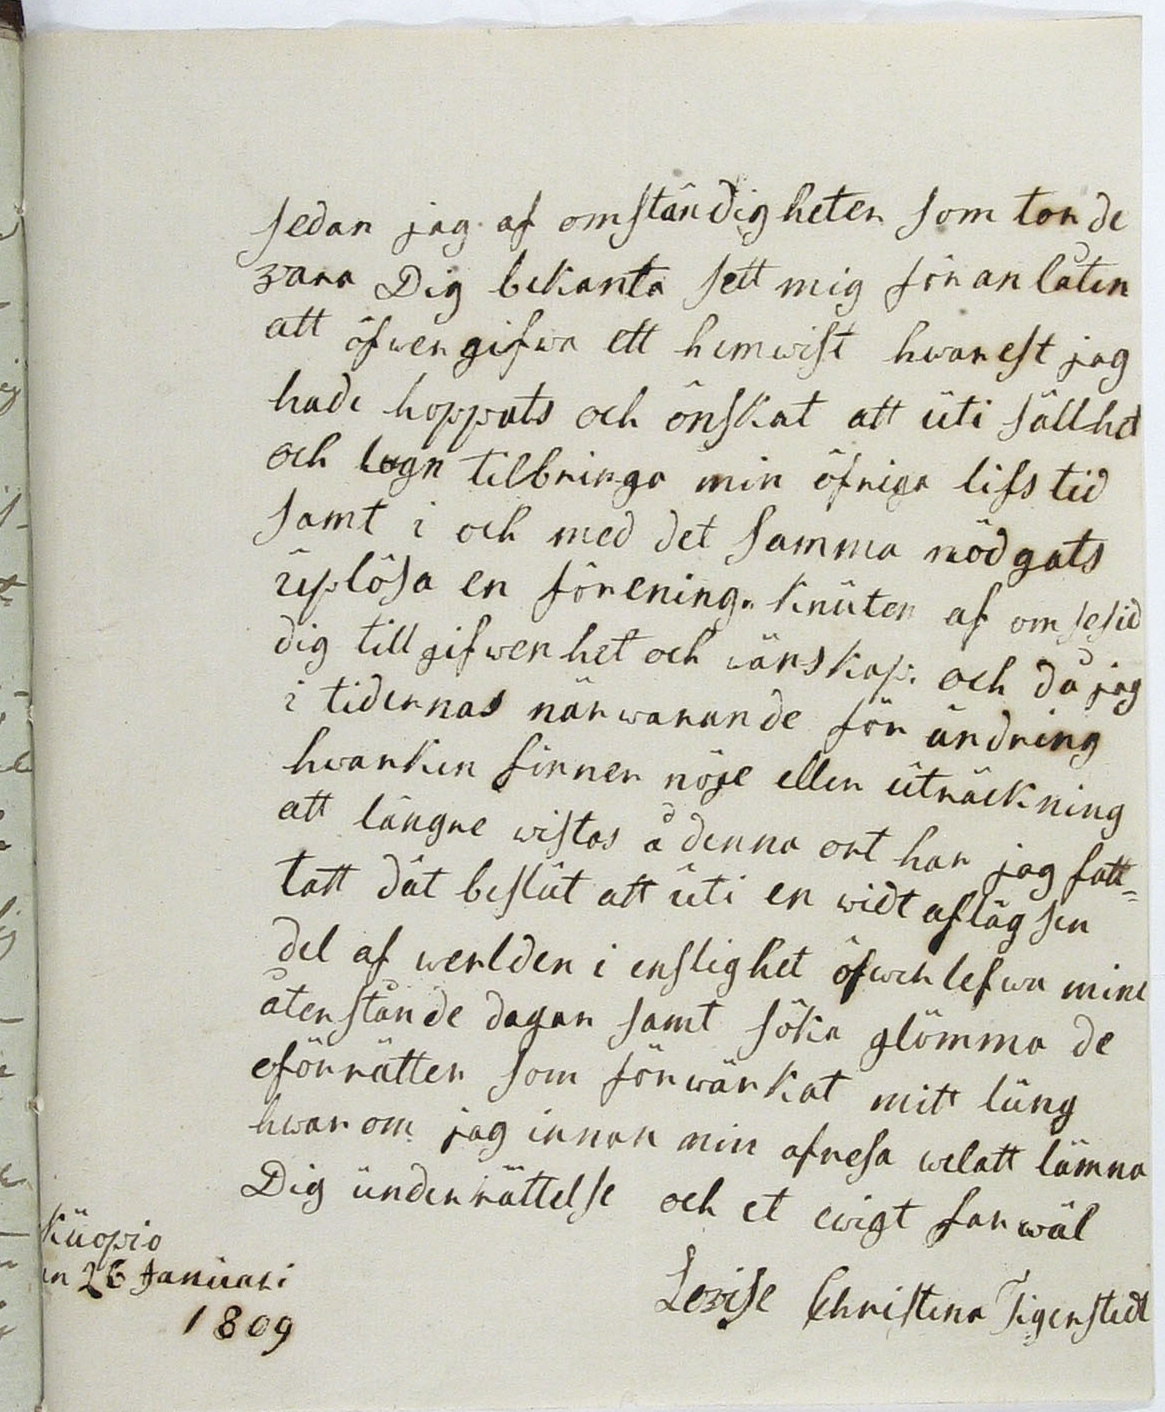 Sedan jag af omständigheter som torde
vara Dig bekanta sett mig föranlåten
att öfwergifwa ett hemwist hwarest jag
hade hoppats och önskat att uti sällhet
och lugn tilbringa min öfriga lifstid
samt i och med det samma nödgats
uplösa en förening. knuten af omsesid
dig tillgifwenhet och wänskap. och då jag
i tidernas närwarande förändring
hwarken finner nöje eller uträckning
att längre wistas å denna ort har jag fatt=
tatt dät beslut att uti en widt aflägsen
del af werlden i enslighet öfwerlefwa mine
återstånde dagar samt söka glömma de
oförrätter som förwärkat mitt lung
hwarom jag innan min afresa welatt lämna
Dig underrättelse och et ewigt farwäl
Kuopio
26 Januari
1809
Lovise Christina Tigerstedt